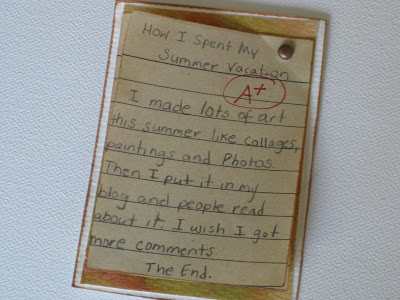 How I Spent My
Summer Vacation
A+
I made lots of art
this summer like collages,
paintings and Photos.
Then I put it in my
blog and people read
about it. I wish I got
more comments.
The End.